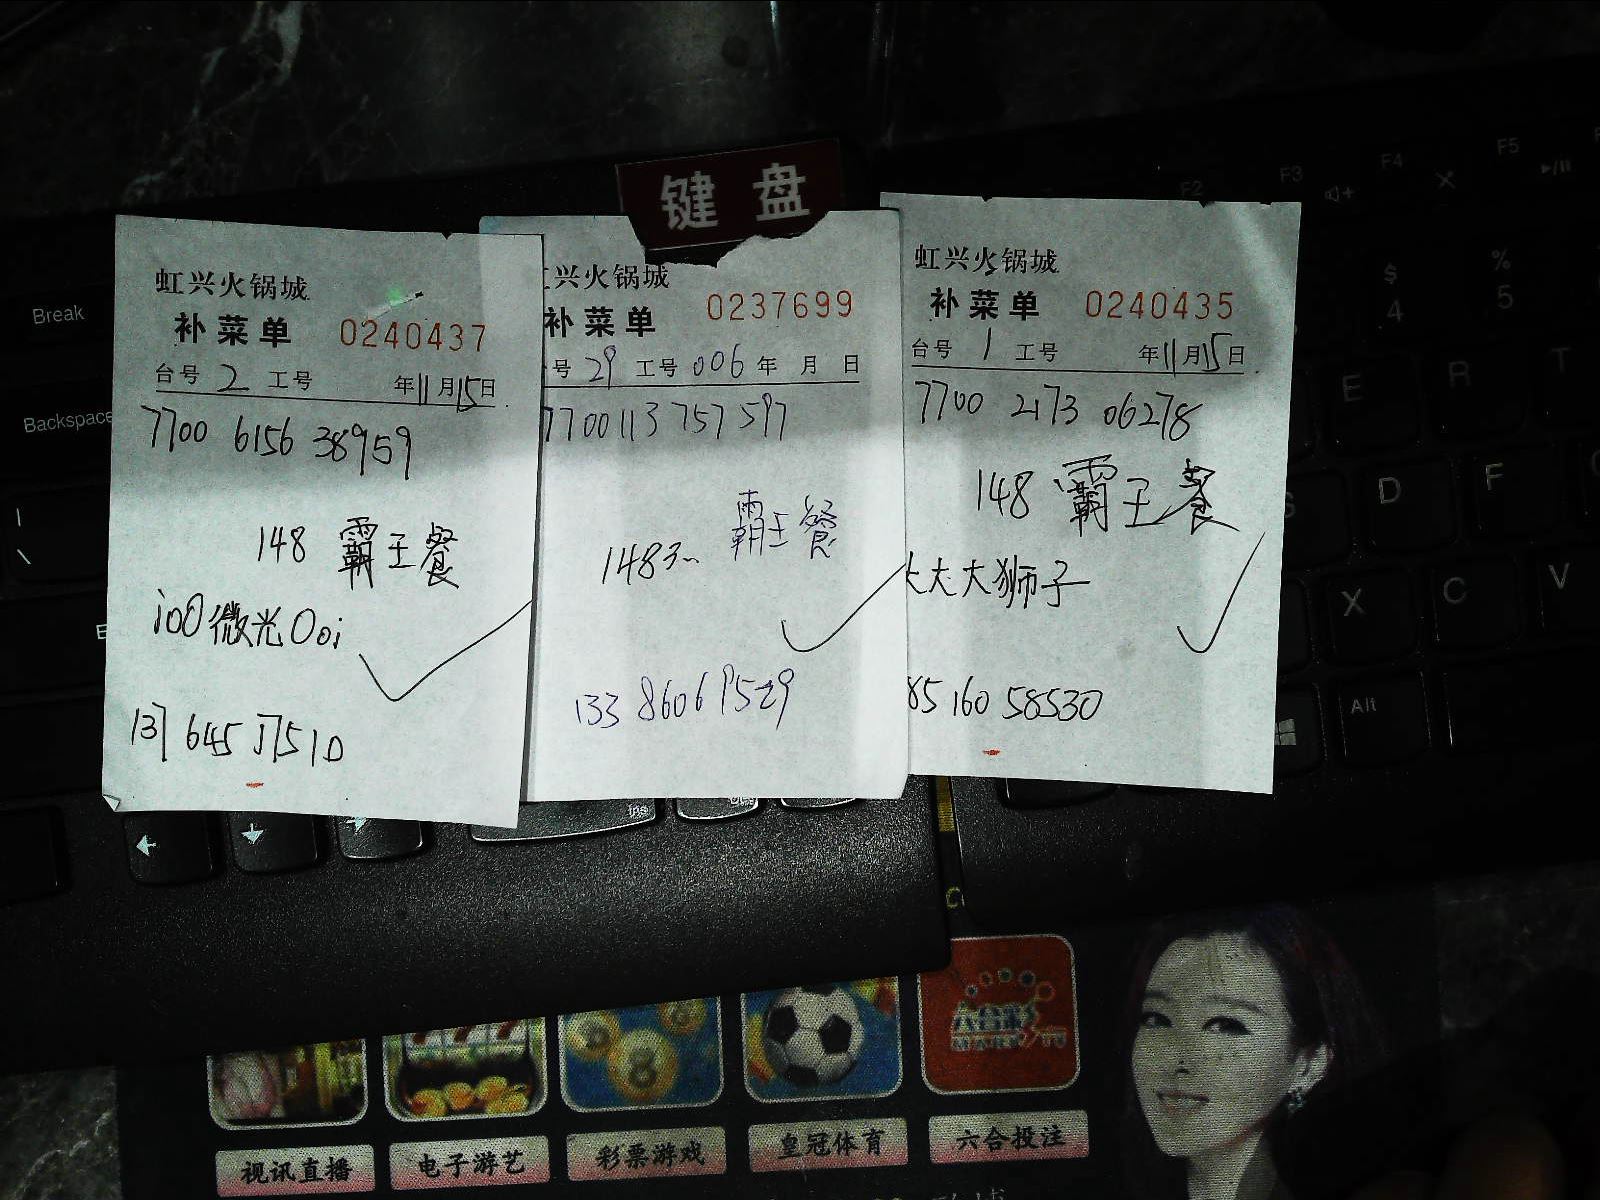 键盘
虹兴火锅城
补菜单 0240437
台号 2 工号 年11月15日
7700 6156 38959
148 霸王餐
io0微光Ooi
137 645 J7510
兴火锅城
补菜单 0237699
号 29 工号 006 年 月 日
7700113 757 597
148 霸王餐
133 8606 9529
虹兴火锅城
补菜单 0240435
台号 1 工号 年11月15日
7700 2173 06278
148 霸王餐
大大大狮子
85 160 58530
Break
Backspace
|
\
Ins
F2
F3
F4
F5
$
4
%
5
E
R
T
S
D
F
X
C
V
Alt
视讯直播
电子游艺
彩票游戏
皇冠体育
六合投注